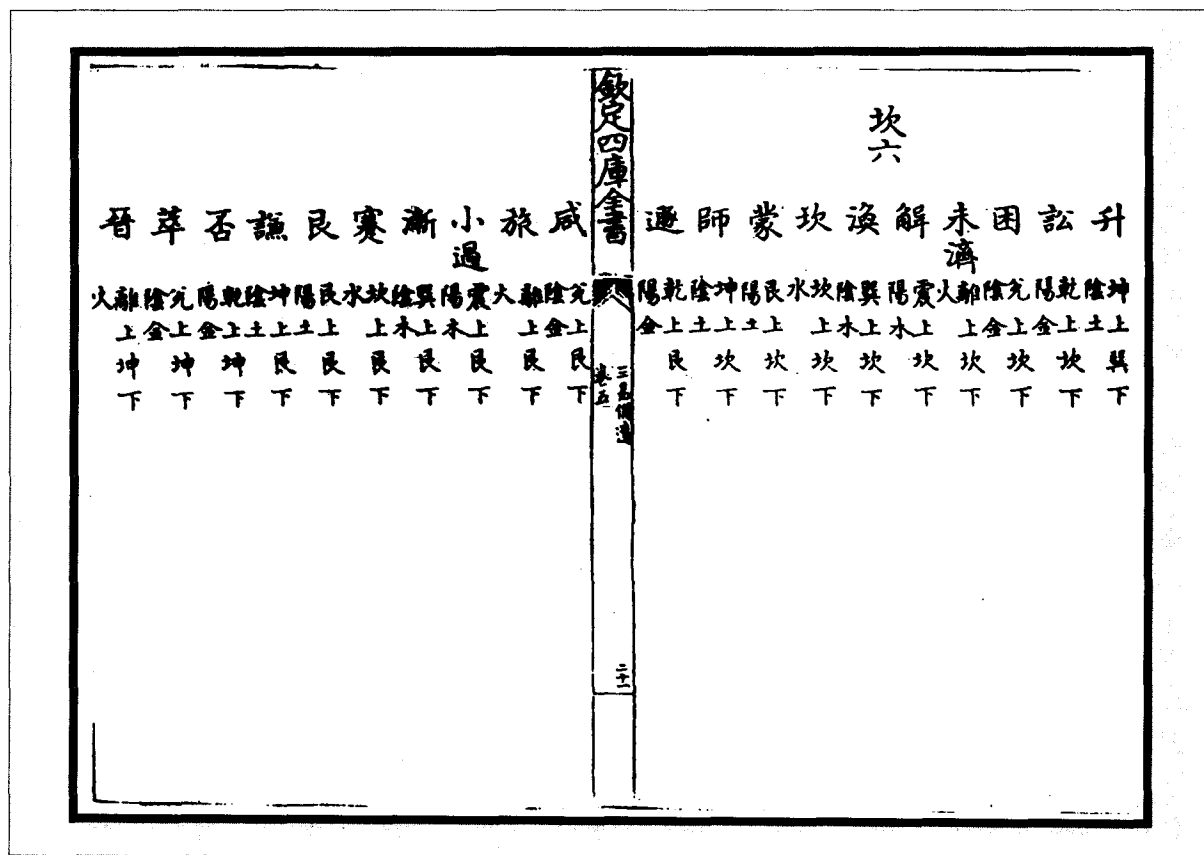 升 坤上巽下 陰土
訟 乾上坎下 陽金
困 兌上坎下 陰金
未濟 離上坎下 火
解 震上坎下 陽木
坎六
渙 巽上坎下 陰木
坎 坎上坎下 水
蒙 艮上坎下 陽土
師 坤上坎下 陰土
遯 乾上艮下 陽金
欽定四庫全書
三易備遺
卷五
二十一
咸 兌上艮下 陰金
旅 離上艮下 火
小過 震上艮下 陽木
漸 巽上艮下 陰木
蹇 坎上艮下 水
艮 艮上艮下 陽土
謙 坤上艮下 陰土
否 乾上坤下 陽金
萃 兌上坤下 陰金
晉 離上坤下 火